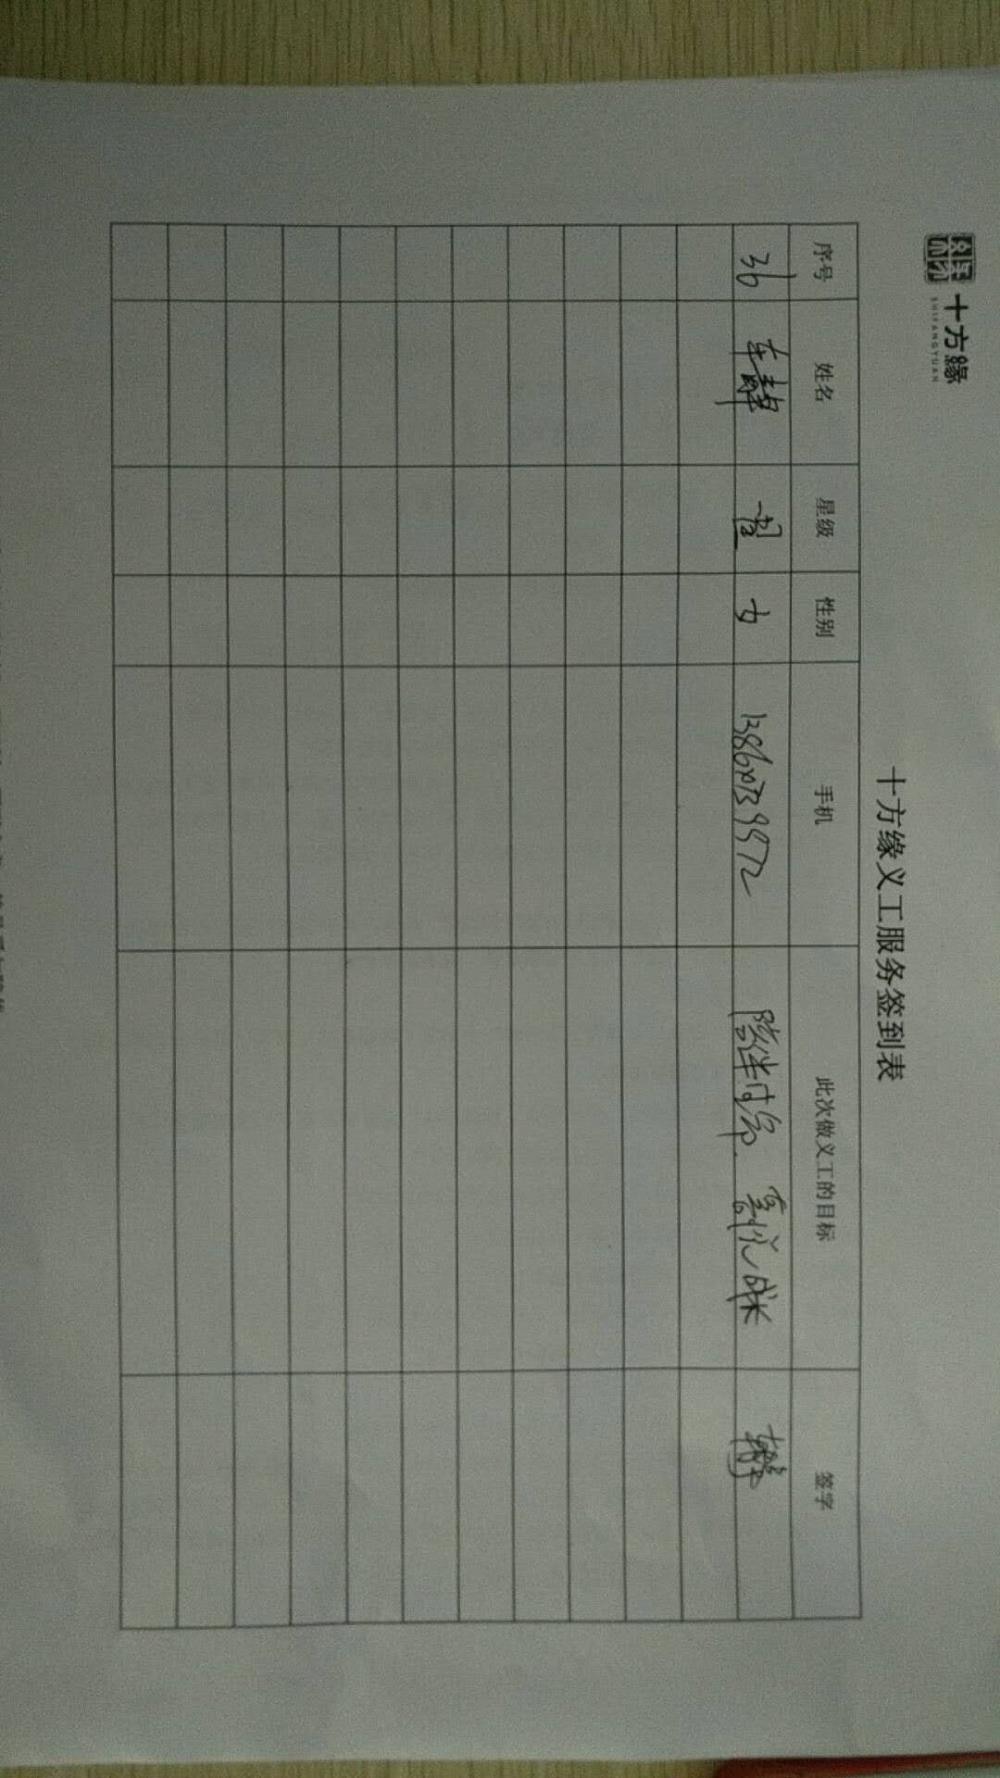 十方緣
SHIFANGYUAN
十方缘义工服务签到表
序号 姓名 星级 性别 手机 此次做义工的目标 签字
36 车静 一星 女 陪伴付出. 喜悦成长 车静